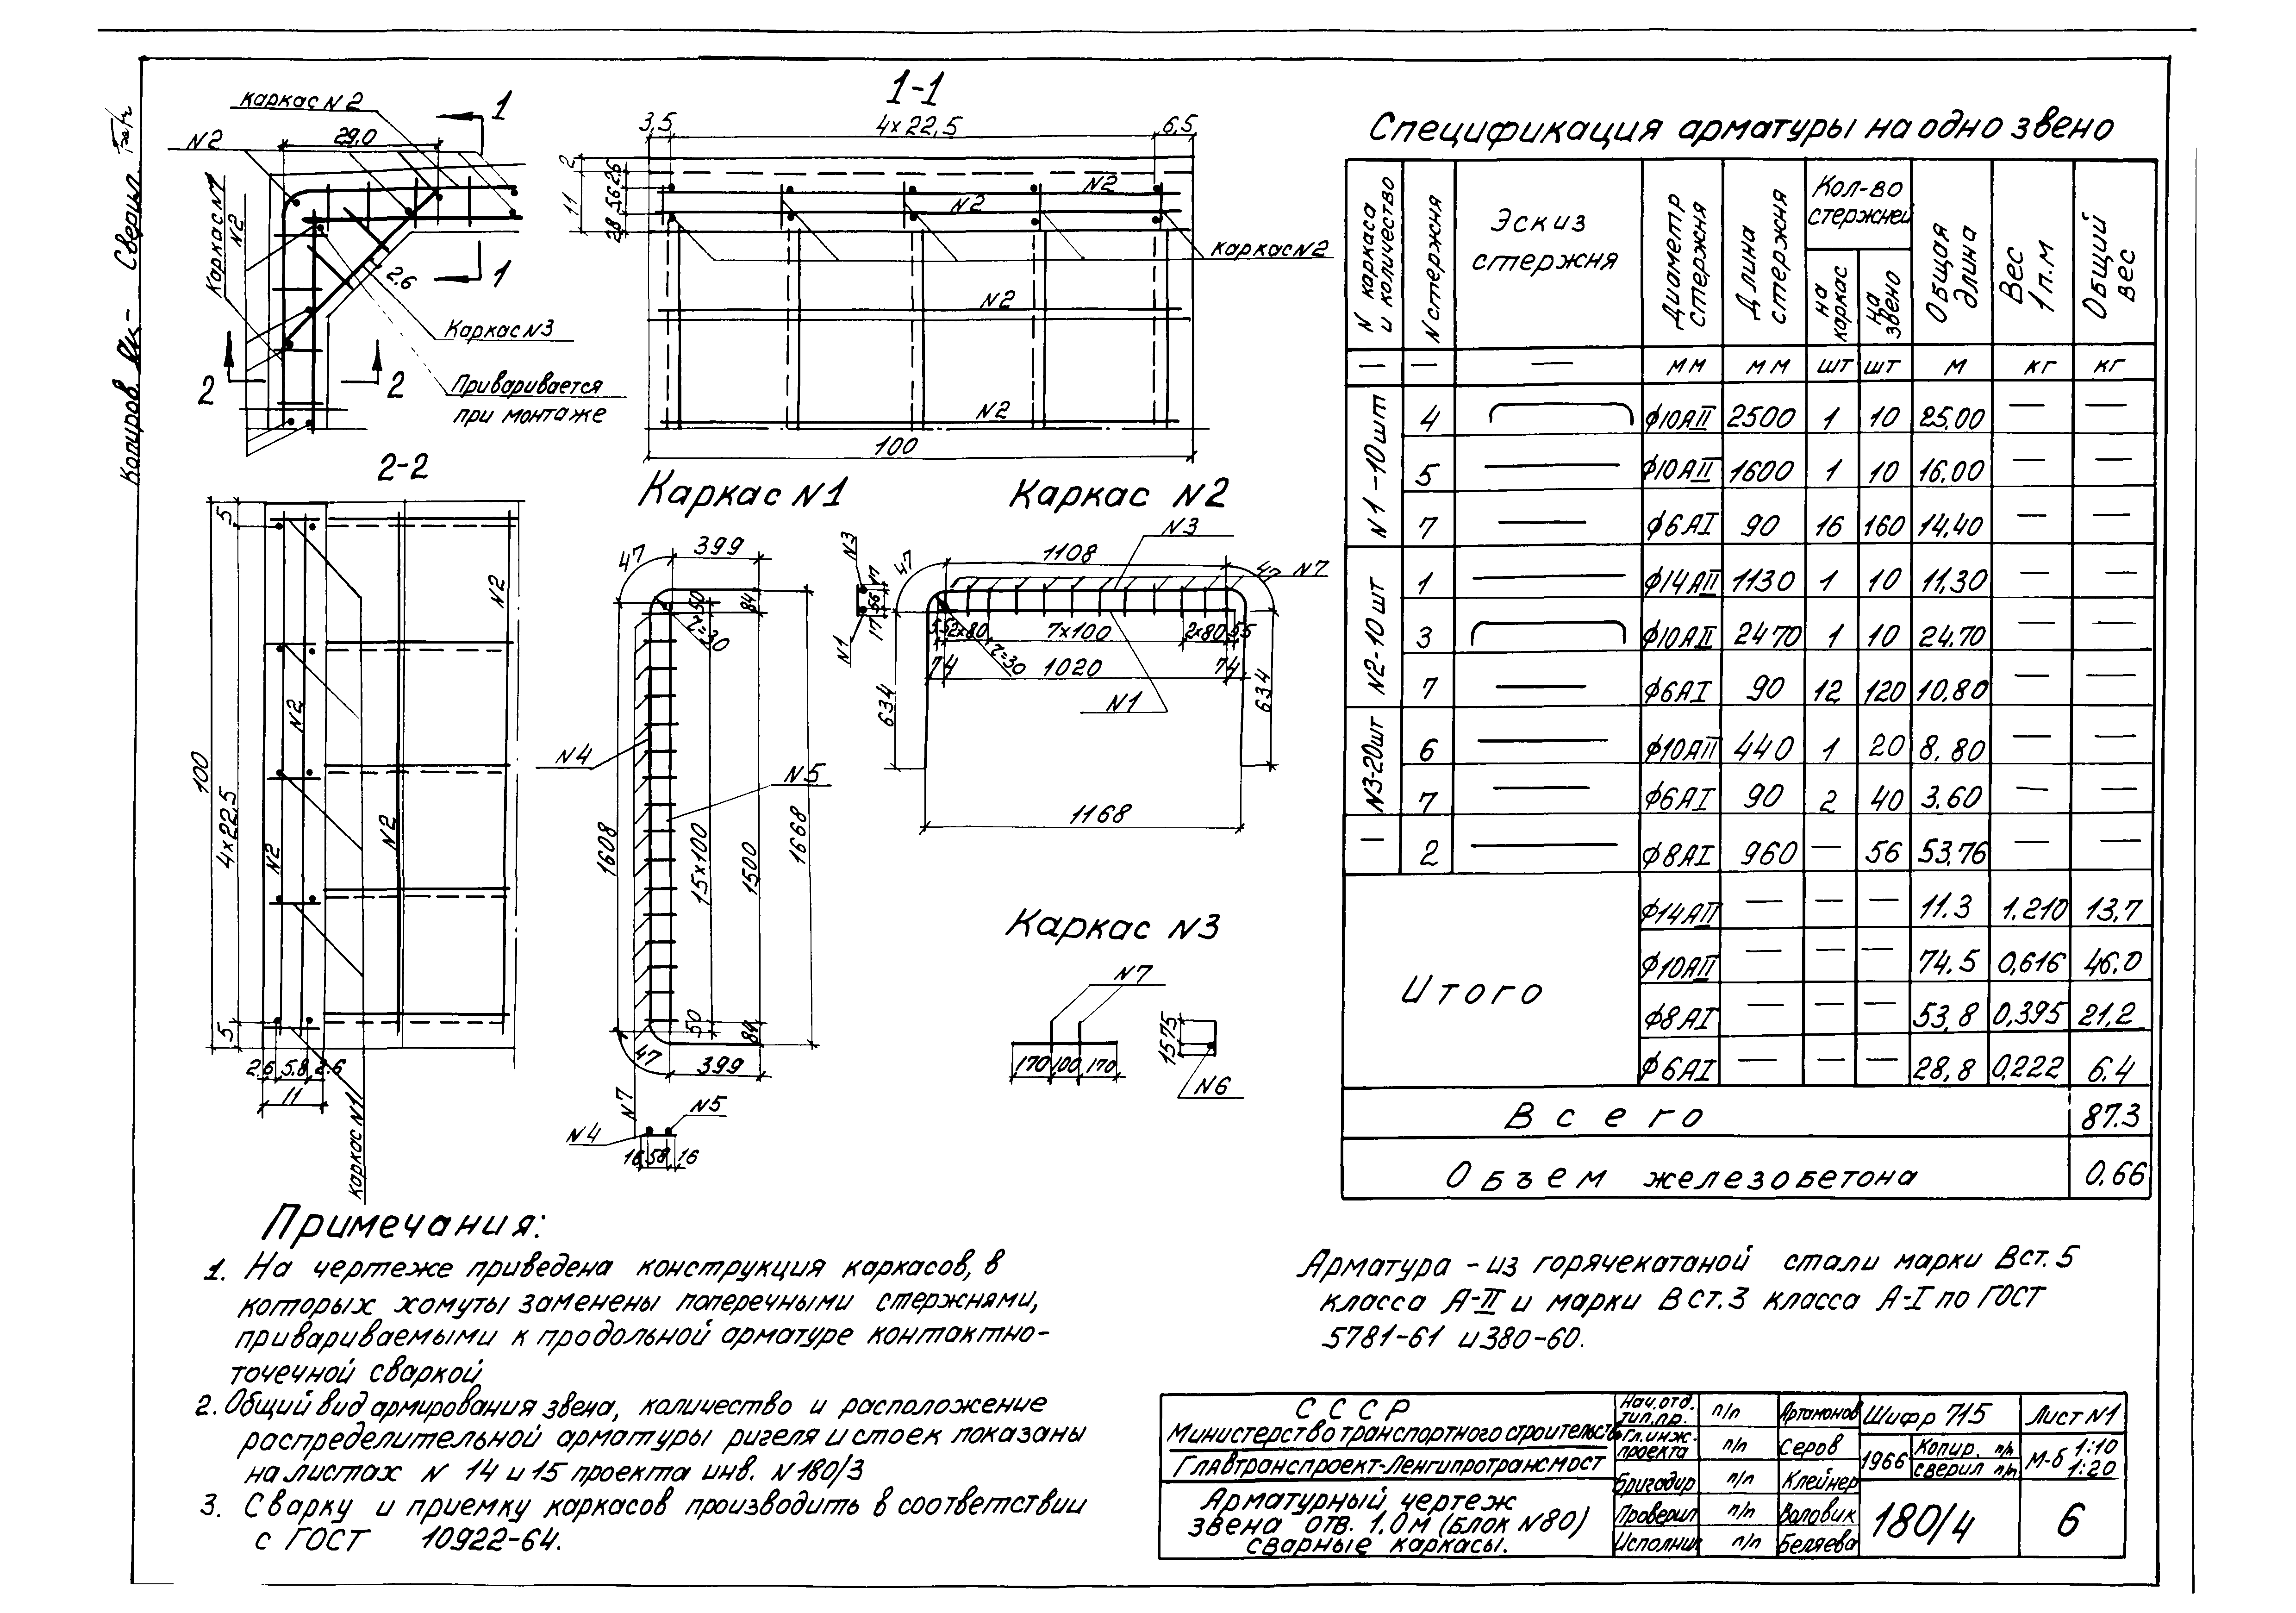 Копиров. Сверил.
Каркас N2
1
N2
29,0
Каркас N1
N2
2.6
1
Каркас N3
Приваривается
при монтаже
2
2
1-1
3,5
4×22,5
6,5
2
11
2.6
5.6
2.8
N2
N2
Каркас N2
N2
N2
100
2-2
5
100
4×22,5
5
N2
N2
N2
N2
2.6
5.8
2.6
11
Каркас N1
Каркас N1
47
399
50
84
r=30
N4
N5
1608
15×100
1500
1668
50
84
47
399
N7
N5
N4
16
58
16
Каркас N2
N3
N3
17
56
17
N1
47
1108
47
N7
55
2×80
7×100
2×80
55
r=30
74
1020
74
634
N1
634
1168
Каркас N3
N7
170
100
170
15
75
N6
Спецификация арматуры на одно звено
N каркаса и количество
N стержня
Эскиз стержня
Диаметр стержня
Длина стержня
Кол-во стержней
на каркас
на звено
Общая длина
Вес 1 п.м
Общий вес
— — — мм мм шт шт м кг кг
N1-10шт 4 ϕ10АII 2500 1 10 25.00 — —
5 ϕ10АII 1600 1 10 16.00 — —
7 ϕ6АI 90 16 160 14.40 — —
N2-10шт 1 ϕ14АII 1130 1 10 11,30 — —
3 ϕ10АII 2470 1 10 24.70 — —
7 ϕ6АI 90 12 120 10,80 — —
N3-20шт 6 ϕ10АII 440 1 20 8,80 — —
7 ϕ6АI 90 2 40 3.60 — —
— 2 ϕ8АI 960 — 56 53,76 — —
Итого ϕ14АII — — — 11.3 1,210 13,7
ϕ10АII — — — 74.5 0,616 46.0
ϕ8АI — — — 53,8 0,395 21,2
ϕ6АI — — — 28,8 0,222 6.4
Всего 87.3
Объем железобетона 0.66
Примечания:
1. На чертеже приведена конструкция каркасов, в
которых хомуты заменены поперечными стержнями,
привариваемыми к продольной арматуре контактно-
точечной сваркой
2. Общий вид армирования звена, количество и расположение
распределительной арматуры ригеля и стоек показаны
на листах N 14 и 15 проекта инв. N180/3
3. Сварку и приемку каркасов производить в соответствии
с ГОСТ 10922-64.
Арматура - из горячекатаной стали марки Вст.5
класса А-II и марки Вст.3 класса А-I по ГОСТ
5781-61 и 380-60.
СССР
Министерство транспортного строительств
Главтранспроект-Ленгипротрансмост
Арматурный чертеж
звена отв. 1.0м (блок N80)
сварные каркасы.
Нач.отд. тип.пр. п/п Артамонов
Гл.инж. проекта п/п Серов
Бригадир п/п Клейнер
Проверил п/п Воловик
Исполнил п/п Беляева
Шифр 715
Лист N1
1966
Копир. п/п
сверил п/п
М-б 1:10
1:20
180/4
6